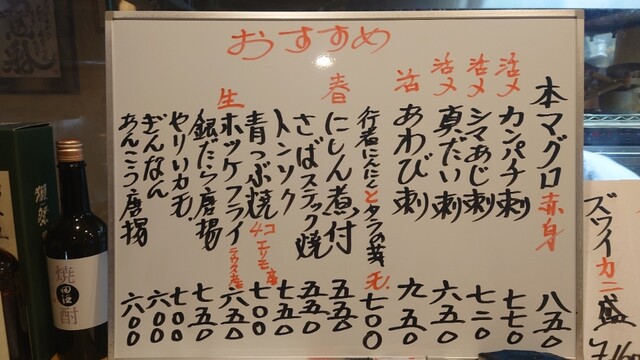 おすすめ
本マグロ赤身 八五〇
活〆カンパチ刺 七七〇
活〆シマあじ刺 七二〇
活〆真だい刺 六五〇
活あわび刺 九五〇
行者にんにくとタラの芽 天 七〇〇
春にしん煮付 五五〇
さばステック焼 五五〇
トンソク 七五〇
青つぶ焼 七〇〇
生ホッケフライ 六五〇
銀だら唐揚 七五〇
やりいか天 七〇〇
ぎんなん 六〇〇
あんこう唐揚 六〇〇
ズワイカニ盛
焼酎